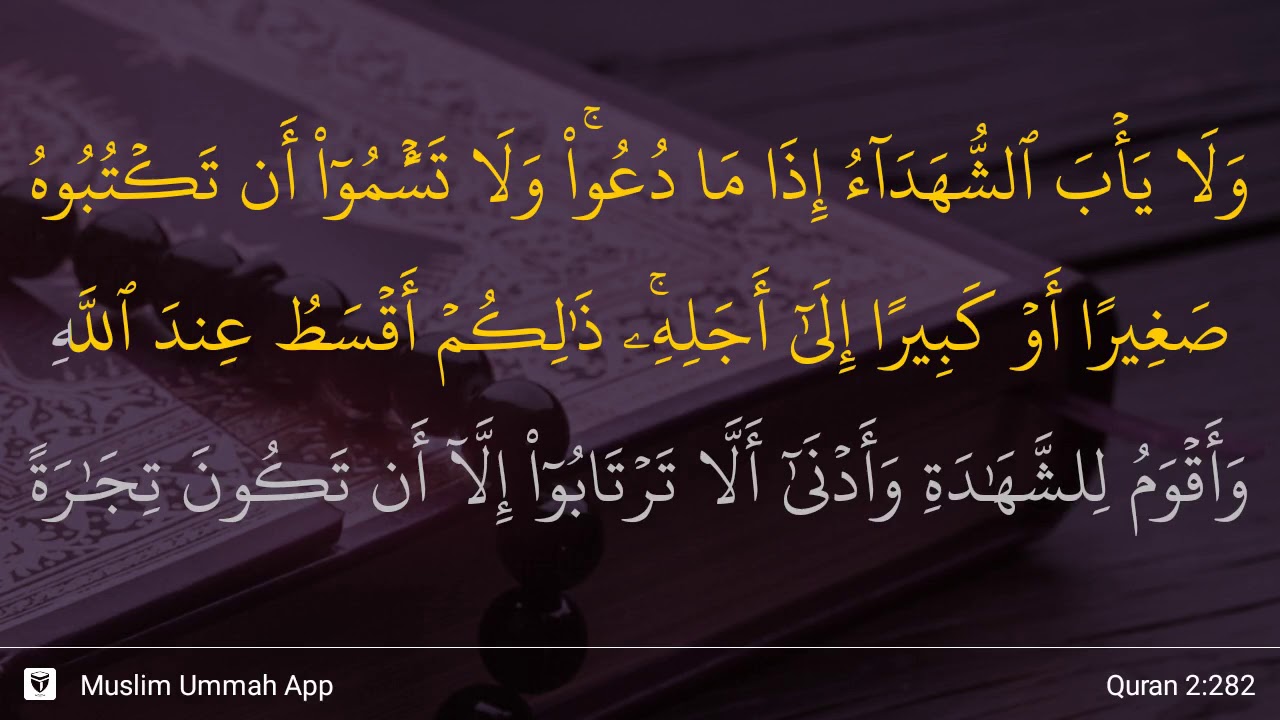 وَلَا يَأۡبَ ٱلشُّهَدَآءُ إِذَا مَا دُعُواْۚ وَلَا تَسۡـَٔمُوٓاْ أَن تَكۡتُبُوهُ
صَغِيرًا أَوۡ كَبِيرًا إِلَىٰٓ أَجَلِهِۦۚ ذَٰلِكُمۡ أَقۡسَطُ عِندَ ٱللَّهِ
وَأَقۡوَمُ لِلشَّهَٰدَةِ وَأَدۡنَىٰٓ أَلَّا تَرۡتَابُوٓاْ إِلَّآ أَن تَكُونَ تِجَٰرَةً
Muslim Ummah App
Quran 2:282